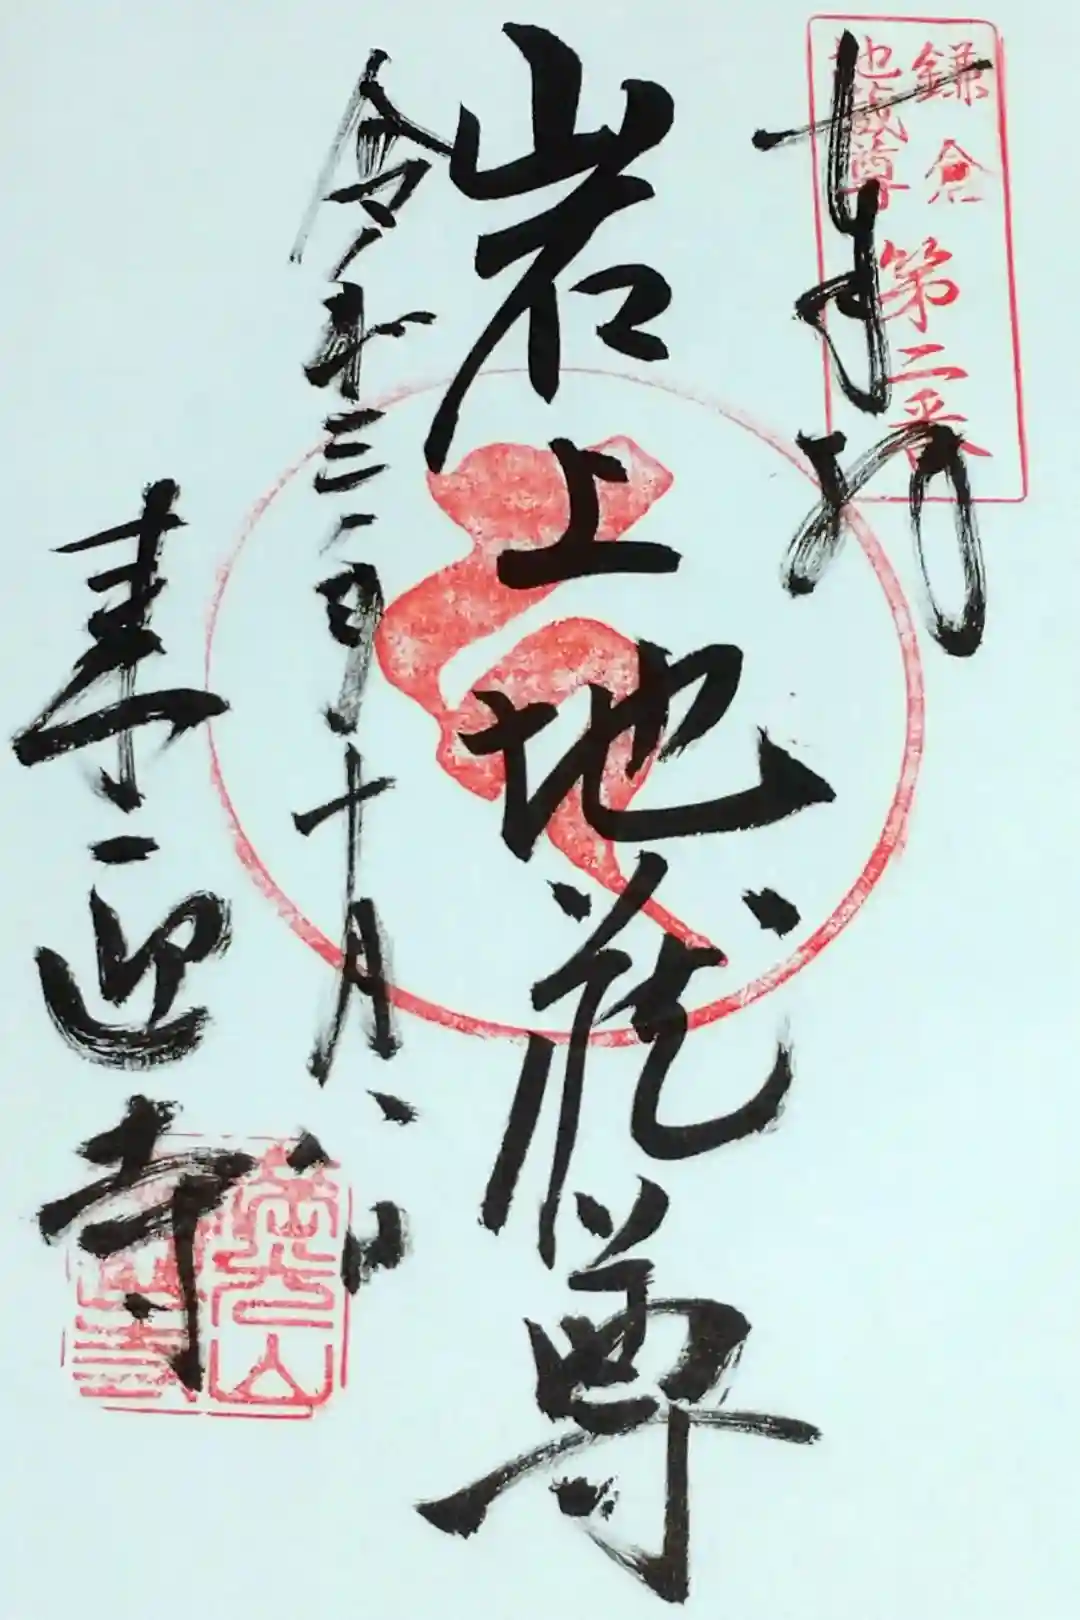 奉拝
鎌倉
地蔵尊
第二番
岩上地蔵尊
令和三年十月八日
来迎寺